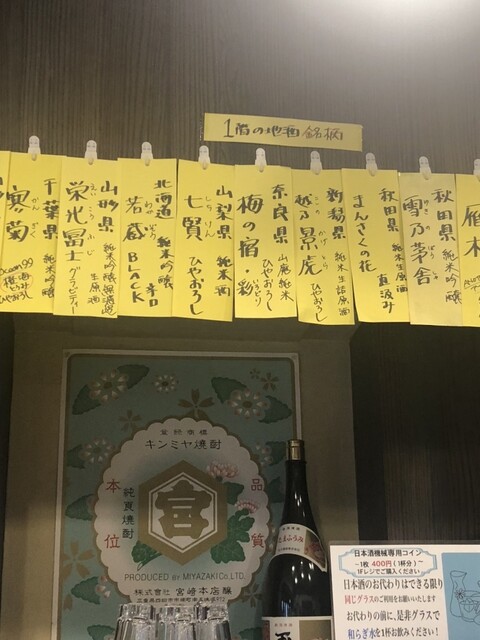 1階の地酒 銘柄
雁木
秋田県
雪乃茅舎
ゆきのぼうしゃ
純米吟醸
秋田県
まんさくの花
純米生原酒
直汲み
新潟県
越乃景虎
こしのかげとら
純米生詰原酒
ひやおろし
奈良県
梅の宿・彩
山廃純米
ひやおろし
山梨県
七賢
しちけん
純米酒
ひやおろし
北海道
若蔵
わかぞう
純米吟醸
辛口
BLACK
山形県
栄光冨士
えいこうふじ
純米吟醸無濾過
生原酒
グラビティー
千葉県
寒菊
かんぎく
純米吟醸
登録商標
キンミヤ焼酎
本位
品質
純良焼酎
宮
PRODUCED BY MIYAZAKI Co. LTD.
株式会社 宮﨑本店醸
日本酒機械専用コイン
~1枚 400円 (1杯分)~
1Fレジでご購入ください
日本酒のお代わりはできる限り
同じグラスのご利用をお願いいたします
お代わりの前に、是非グラスで
和らぎ水を1杯お飲みください!